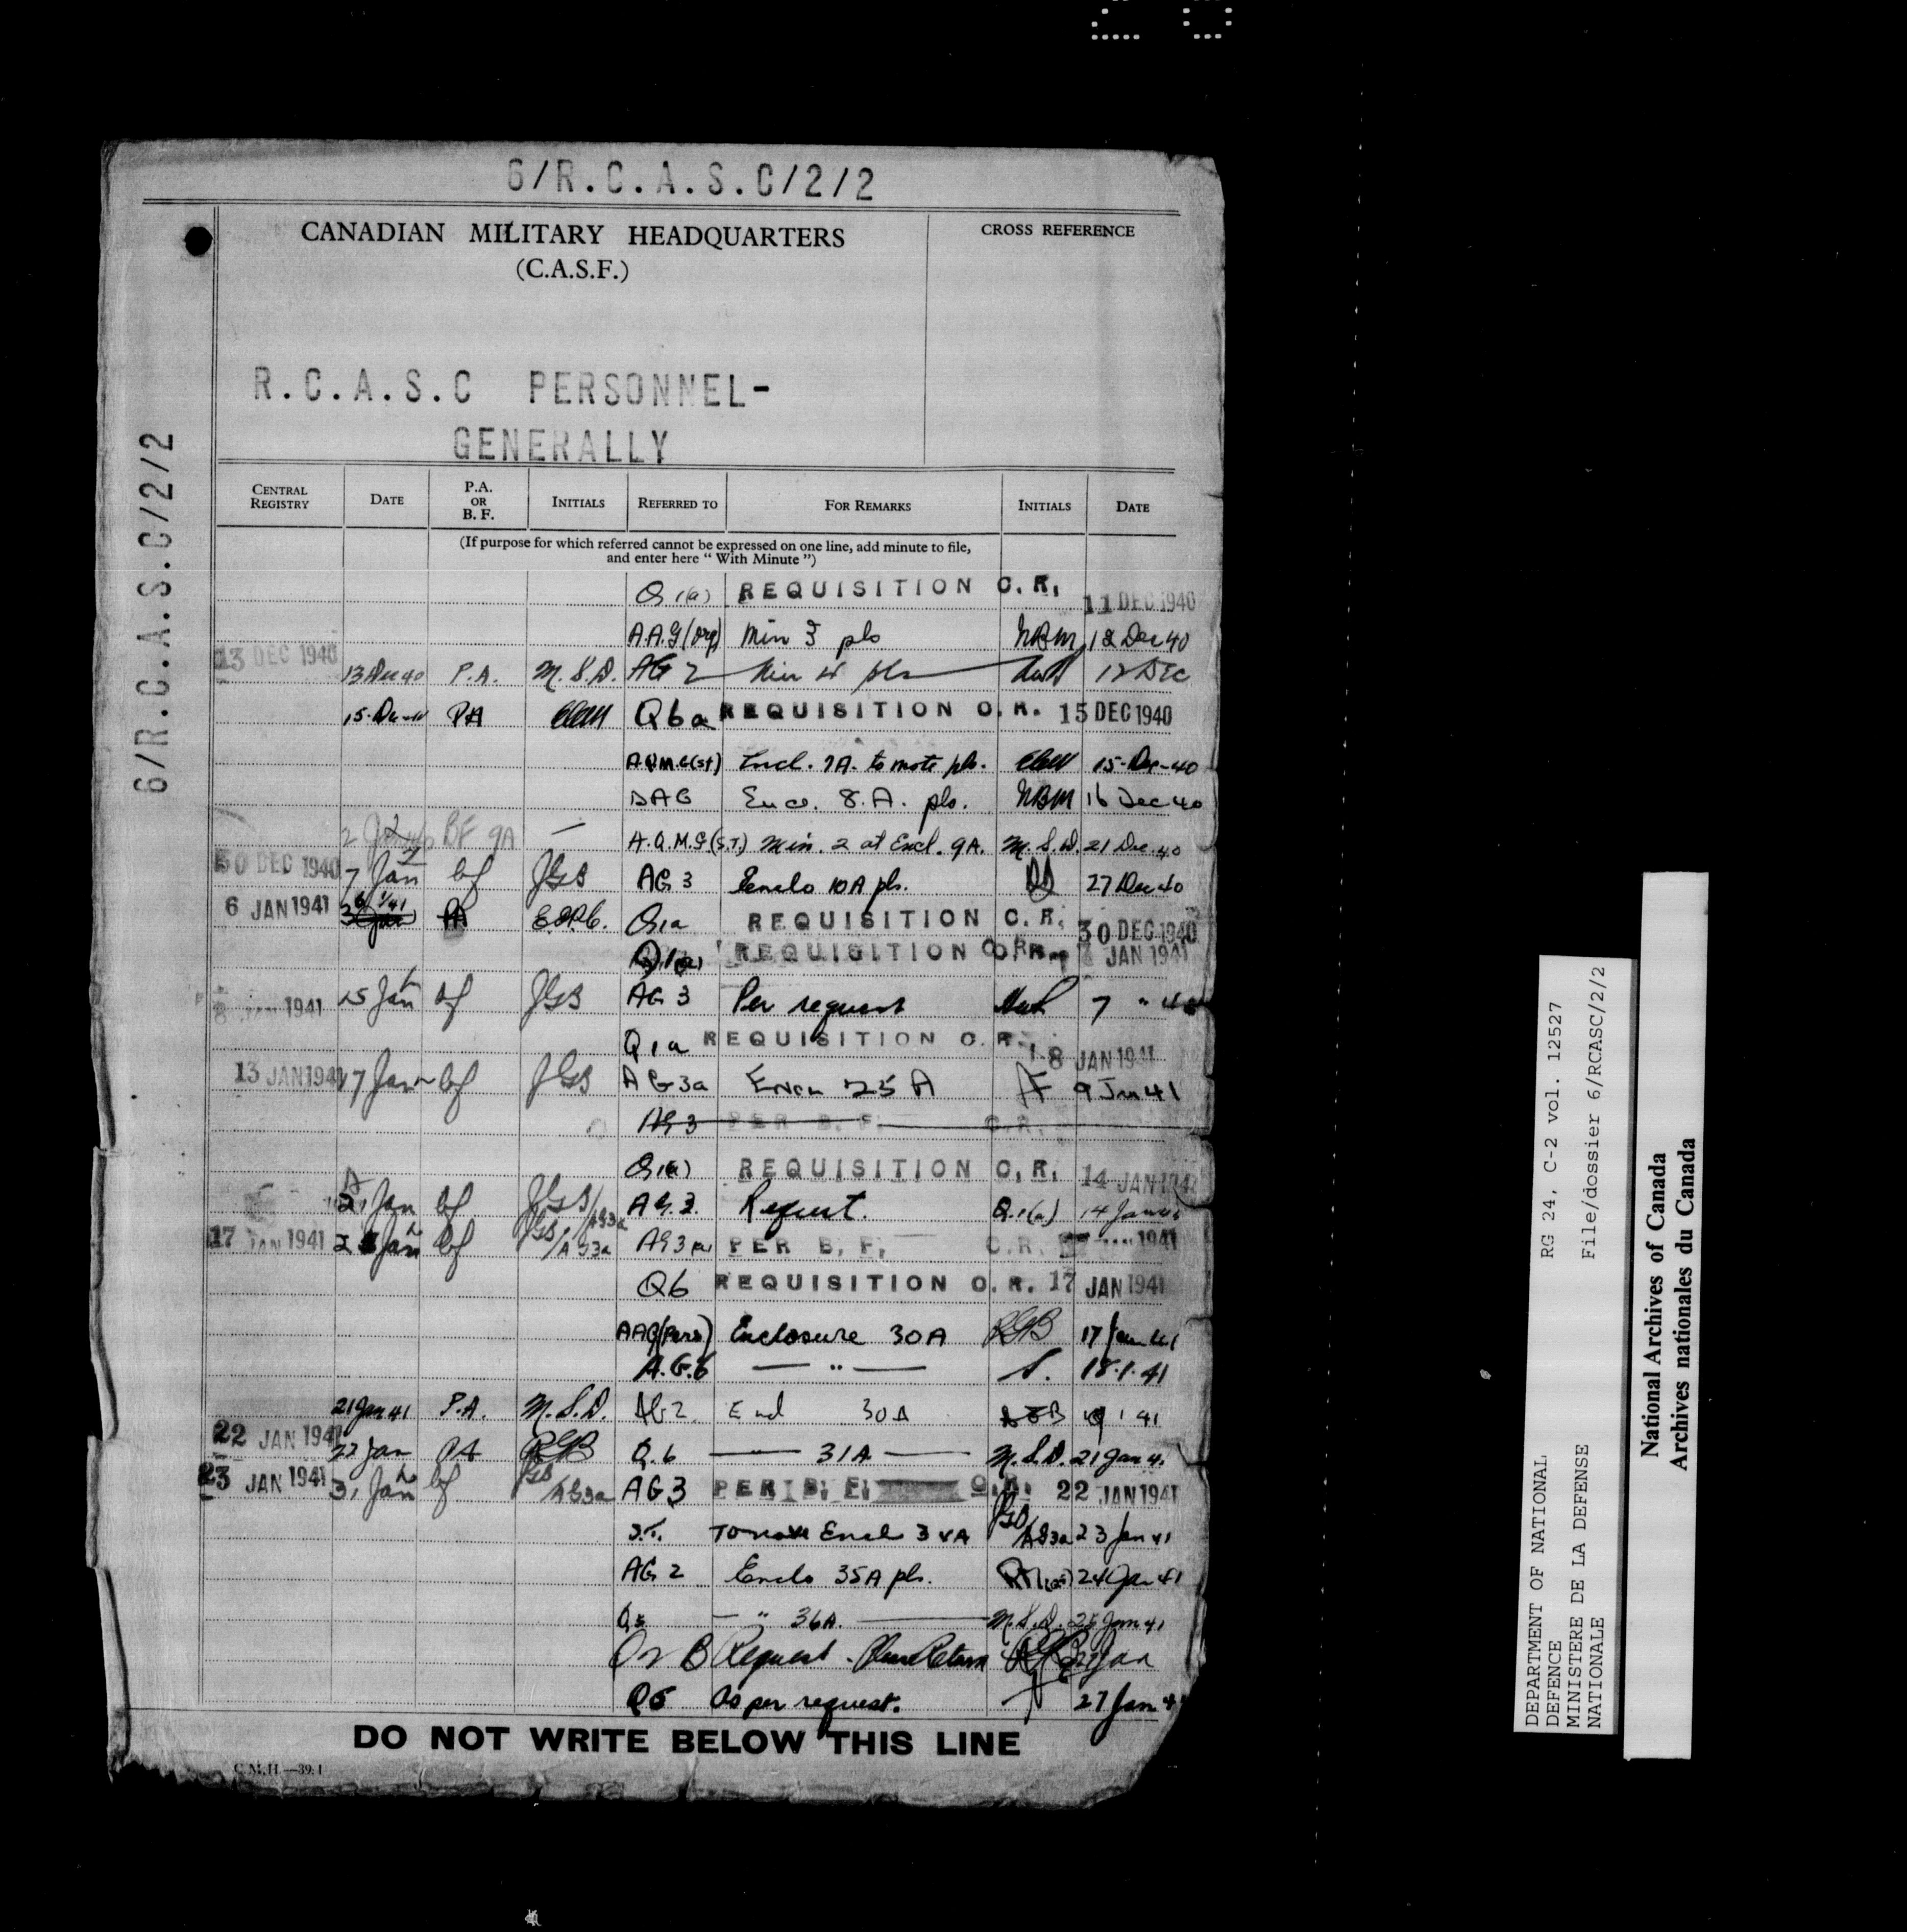 6/R.C.A.S.C/2/2
CANADIAN MILITARY HEADQUARTERS
(C.A.S.F.)
CROSS REFERENCE
R.C.A.S.C PERSONNEL-
GENERALLY
6/R.C.A.S.C/2/2
CENTRAL REGISTRY DATE P.A. OR B.F. INITIALS REFERRED TO FOR REMARKS INITIALS DATE
(If purpose for which referred cannot be expressed on one line, add minute to file,
and enter here " With Minute ")
Q1(a) REQUISITION C.R. 11 DEC 1940
A.A.G (Org) Min 3 pls NBM 12 Dec 40
13 DEC 1940 13 Dec 40 P.A. M.S.D. AG 2 Min 4 pls 12 Dec
PA Q6a REQUISITION C.R. 15 DEC 1940
A.Q.M.G(St) Encl. 7A. to note pls. 15-Dec-40
DAG Enco. 8.A. pls. NBM 16 Dec 40
BF 9A A.Q.M.G (S.T.) Min. 2 at Encl. 9A. M.S.D. 21 Dec. 40
30 DEC 1940 7 Jan bf JGB AG 3 Enclo 10A pls. 27 Dec 40
6 JAN 1941 PA Q1a REQUISITION C.R. 30 DEC 1940
REQUISITION C.R. JAN 1941
1941 15 Jan bf JGB AG 3 Per request 7 "
Q1a REQUISITION C.R. 8 JAN 1941
13 JAN 1941 17 Jan bf JGB AG3a 25A 9 Jan 41
AG3 PER B.F. C.R.
Q1(a) REQUISITION C.R. 14 JAN 1941
21 Jan bf JGB/AG3a AG.3. Request. Q.1(a) 14 Jan
17 JAN 1941 Jan bf JGB/AG3a AG3 PER B.F. C.R. 1941
Q6 REQUISITION C.R. 17 JAN 1941
AAG(Pers) Enclosure 30A RGB 17 Jan 41
A.G.6 — " — 18.1.41
21 Jan 41 P.A. M.S.D. AG2. Encl 30A
22 JAN 1941 22 Jan PA RGB Q.6 — " — 31A — M.S.D. 21 Jan 4.
23 JAN 1941 31 Jan bf JGB/AG3a AG3 PER B.F. C.R. 22 JAN 1941
S.T. To note Encl JGB/AG3a 23 Jan 41
AG2 Enclo 35A pls. 24 Jan 41
— " 36A. — M.S.D. 25 Jan 41
Request. Please Return Jan
As per request. 27 Jan
DO NOT WRITE BELOW THIS LINE
C.M.H.—39:1
DEPARTMENT OF NATIONAL
DEFENCE
MINISTERE DE LA DEFENSE
NATIONALE
RG 24, C-2 vol. 12527
File/dossier 6/RCASC/2/2
National Archives of Canada
Archives nationales du Canada